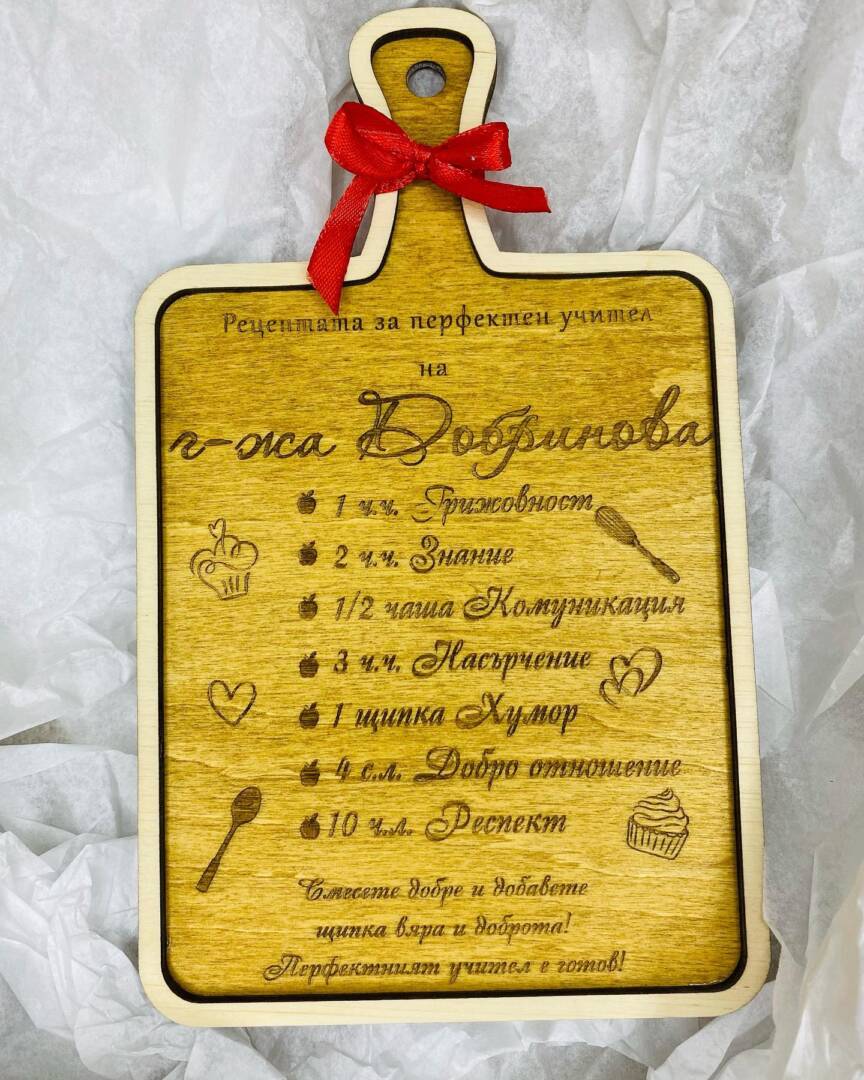 Рецептата за перфектен учител
на
г-жа Добринова
1 ч.ч. Грижовност
2 ч.ч. Знание
1/2 чаша Комуникация
3 ч.ч. Насърчение
1 щипка Хумор
4 с.л. Добро отношение
10 ч.л. Респект
Смесете добре и добавете
щипка вяра и доброта!
Перфектният учител е готов!